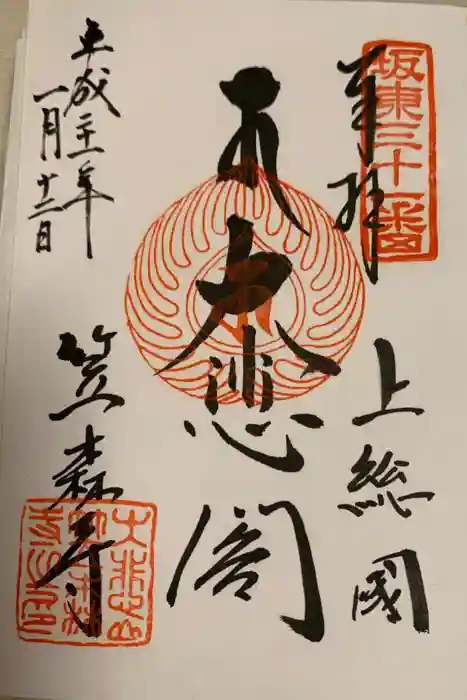 坂東三十一番
奉拝
上総國
大悲閣
平成二十一年
一月十二日
笠森寺